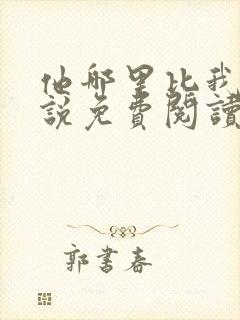 他哪里比我
說免費閱讀
郭書春